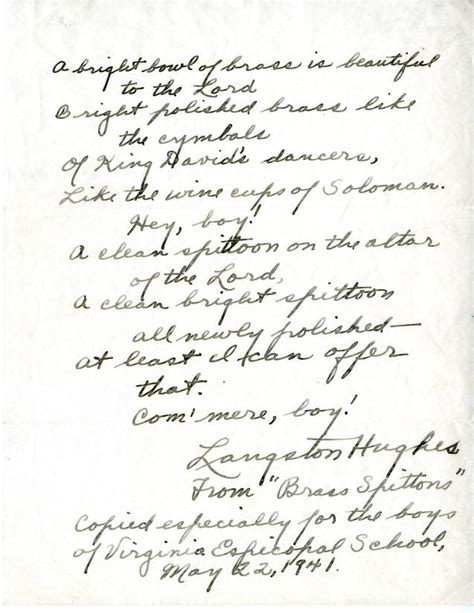 A bright bowl of brass is beautiful
to the Lord
Bright polished brass like
the cymbals
Of King David's dancers,
Like the wine cups of Soloman.
Hey, boy!
A clean spittoon on the altar
of the Lord,
A clean bright spittoon
all newly polished—
at least I can offer
that.
Com' mere, boy!
Langston Hughes
From "Brass Spittons"
Copied especially for the boys
of Virginia Episcopal School,
May 22, 1941.